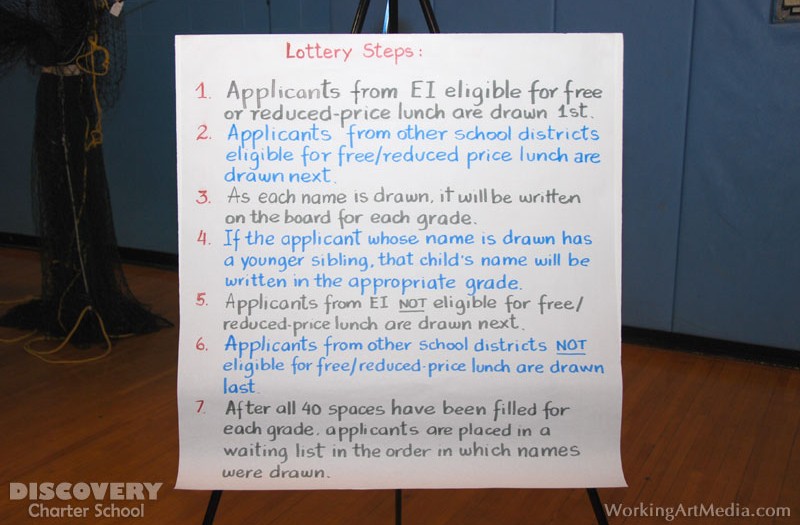 Lottery Steps:
1. Applicants from EI eligible for free
or reduced-price lunch are drawn 1st.
2. Applicants from other school districts
eligible for free/reduced price lunch are
drawn next.
3. As each name is drawn, it will be written
on the board for each grade.
4. If the applicant whose name is drawn has
a younger sibling, that child's name will be
written in the appropriate grade.
5. Applicants from EI NOT eligible for free/
reduced-price lunch are drawn next.
6. Applicants from other school districts NOT
eligible for free/reduced-price lunch are drawn
last.
7. After all 40 spaces have been filled for
each grade, applicants are placed in a
waiting list in the order in which names
were drawn.
DISCOVERY
Charter School
WorkingArtMedia.com